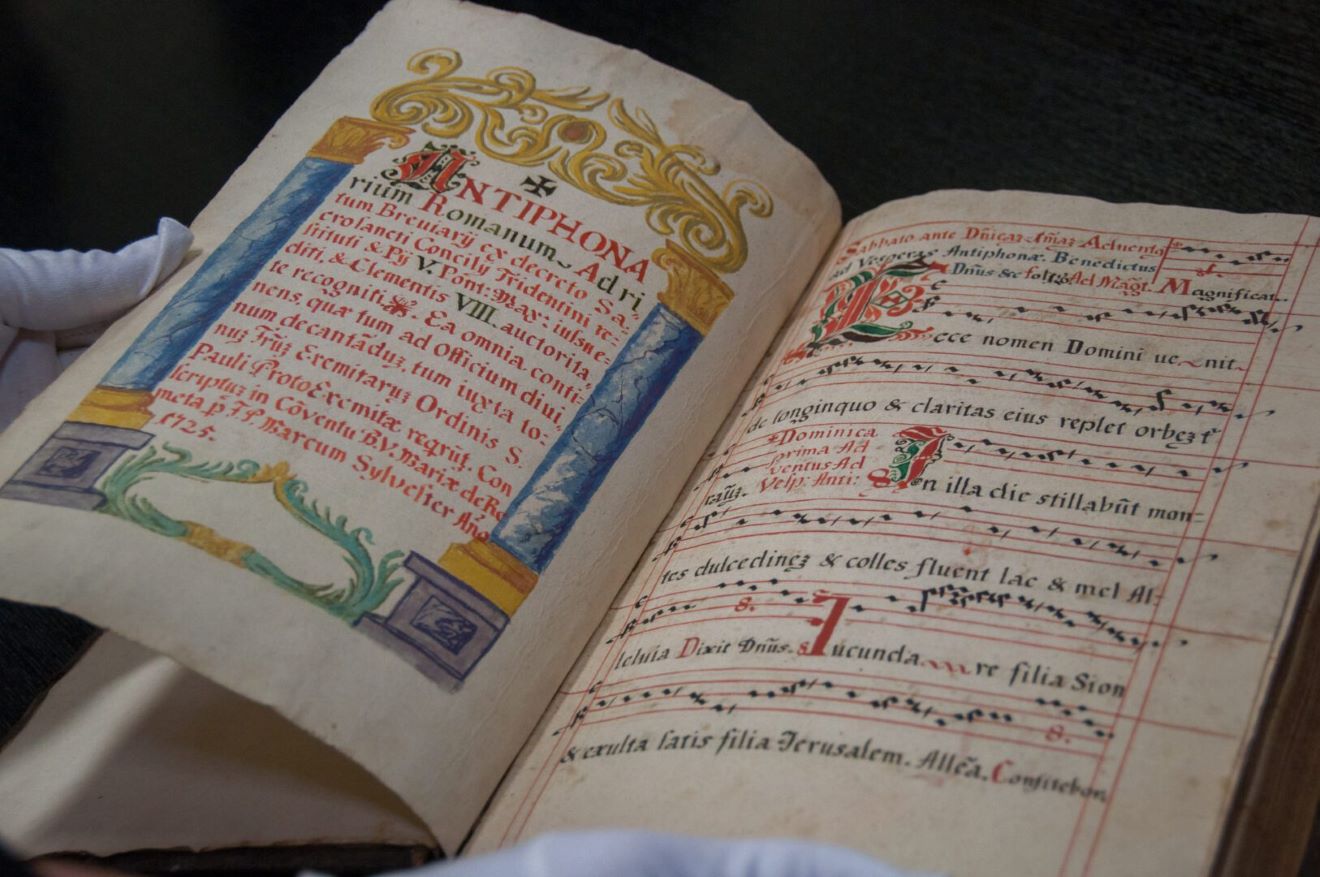 ANTIPHONA
rium Romanum Ad ri
tum Breviarÿ ex decreto Sa:
crosancti Concilÿ Tridentini re:
stituti & Pÿ V. Pont: Max: iusu e:
diti, & Clementis VIII. auctorita,
te recogniti. Ea omnia conti:
nens, quæ tum ad Officium divi,
num decantãduȝ, tum iuxta to:
nuȝ Fr̃uȝ Eremitaruȝ Ordinis S.
Pauli ProtoEremitæ reqrũt. Con
scriptuȝ in Cõventu B.V. Mariæ de Re
meta. p. F. P. Marcum Sylvester Año
1725.
Sabbato ante Dñicaȝ Imaȝ Adventq
ad Vesperas Antiphonæ. Benedictus
Dñus &c Ad Magt. Magnificat.
Ecce nomen Domini ve nit
de longinquo & claritas eius replet orbeȝ tr
raȝ.
Dominica
prima Ad
ventus Ad
Vesp: Anti:
In illa die stillabũt mon:
tes dulcedineȝ & colles fluent lac & mel Al:
leluia Dixit Dñus. 8 Iucunda re filia Sion
8.
& exulta satis filia Jerusalem. Allẽa. Confitebor
8.